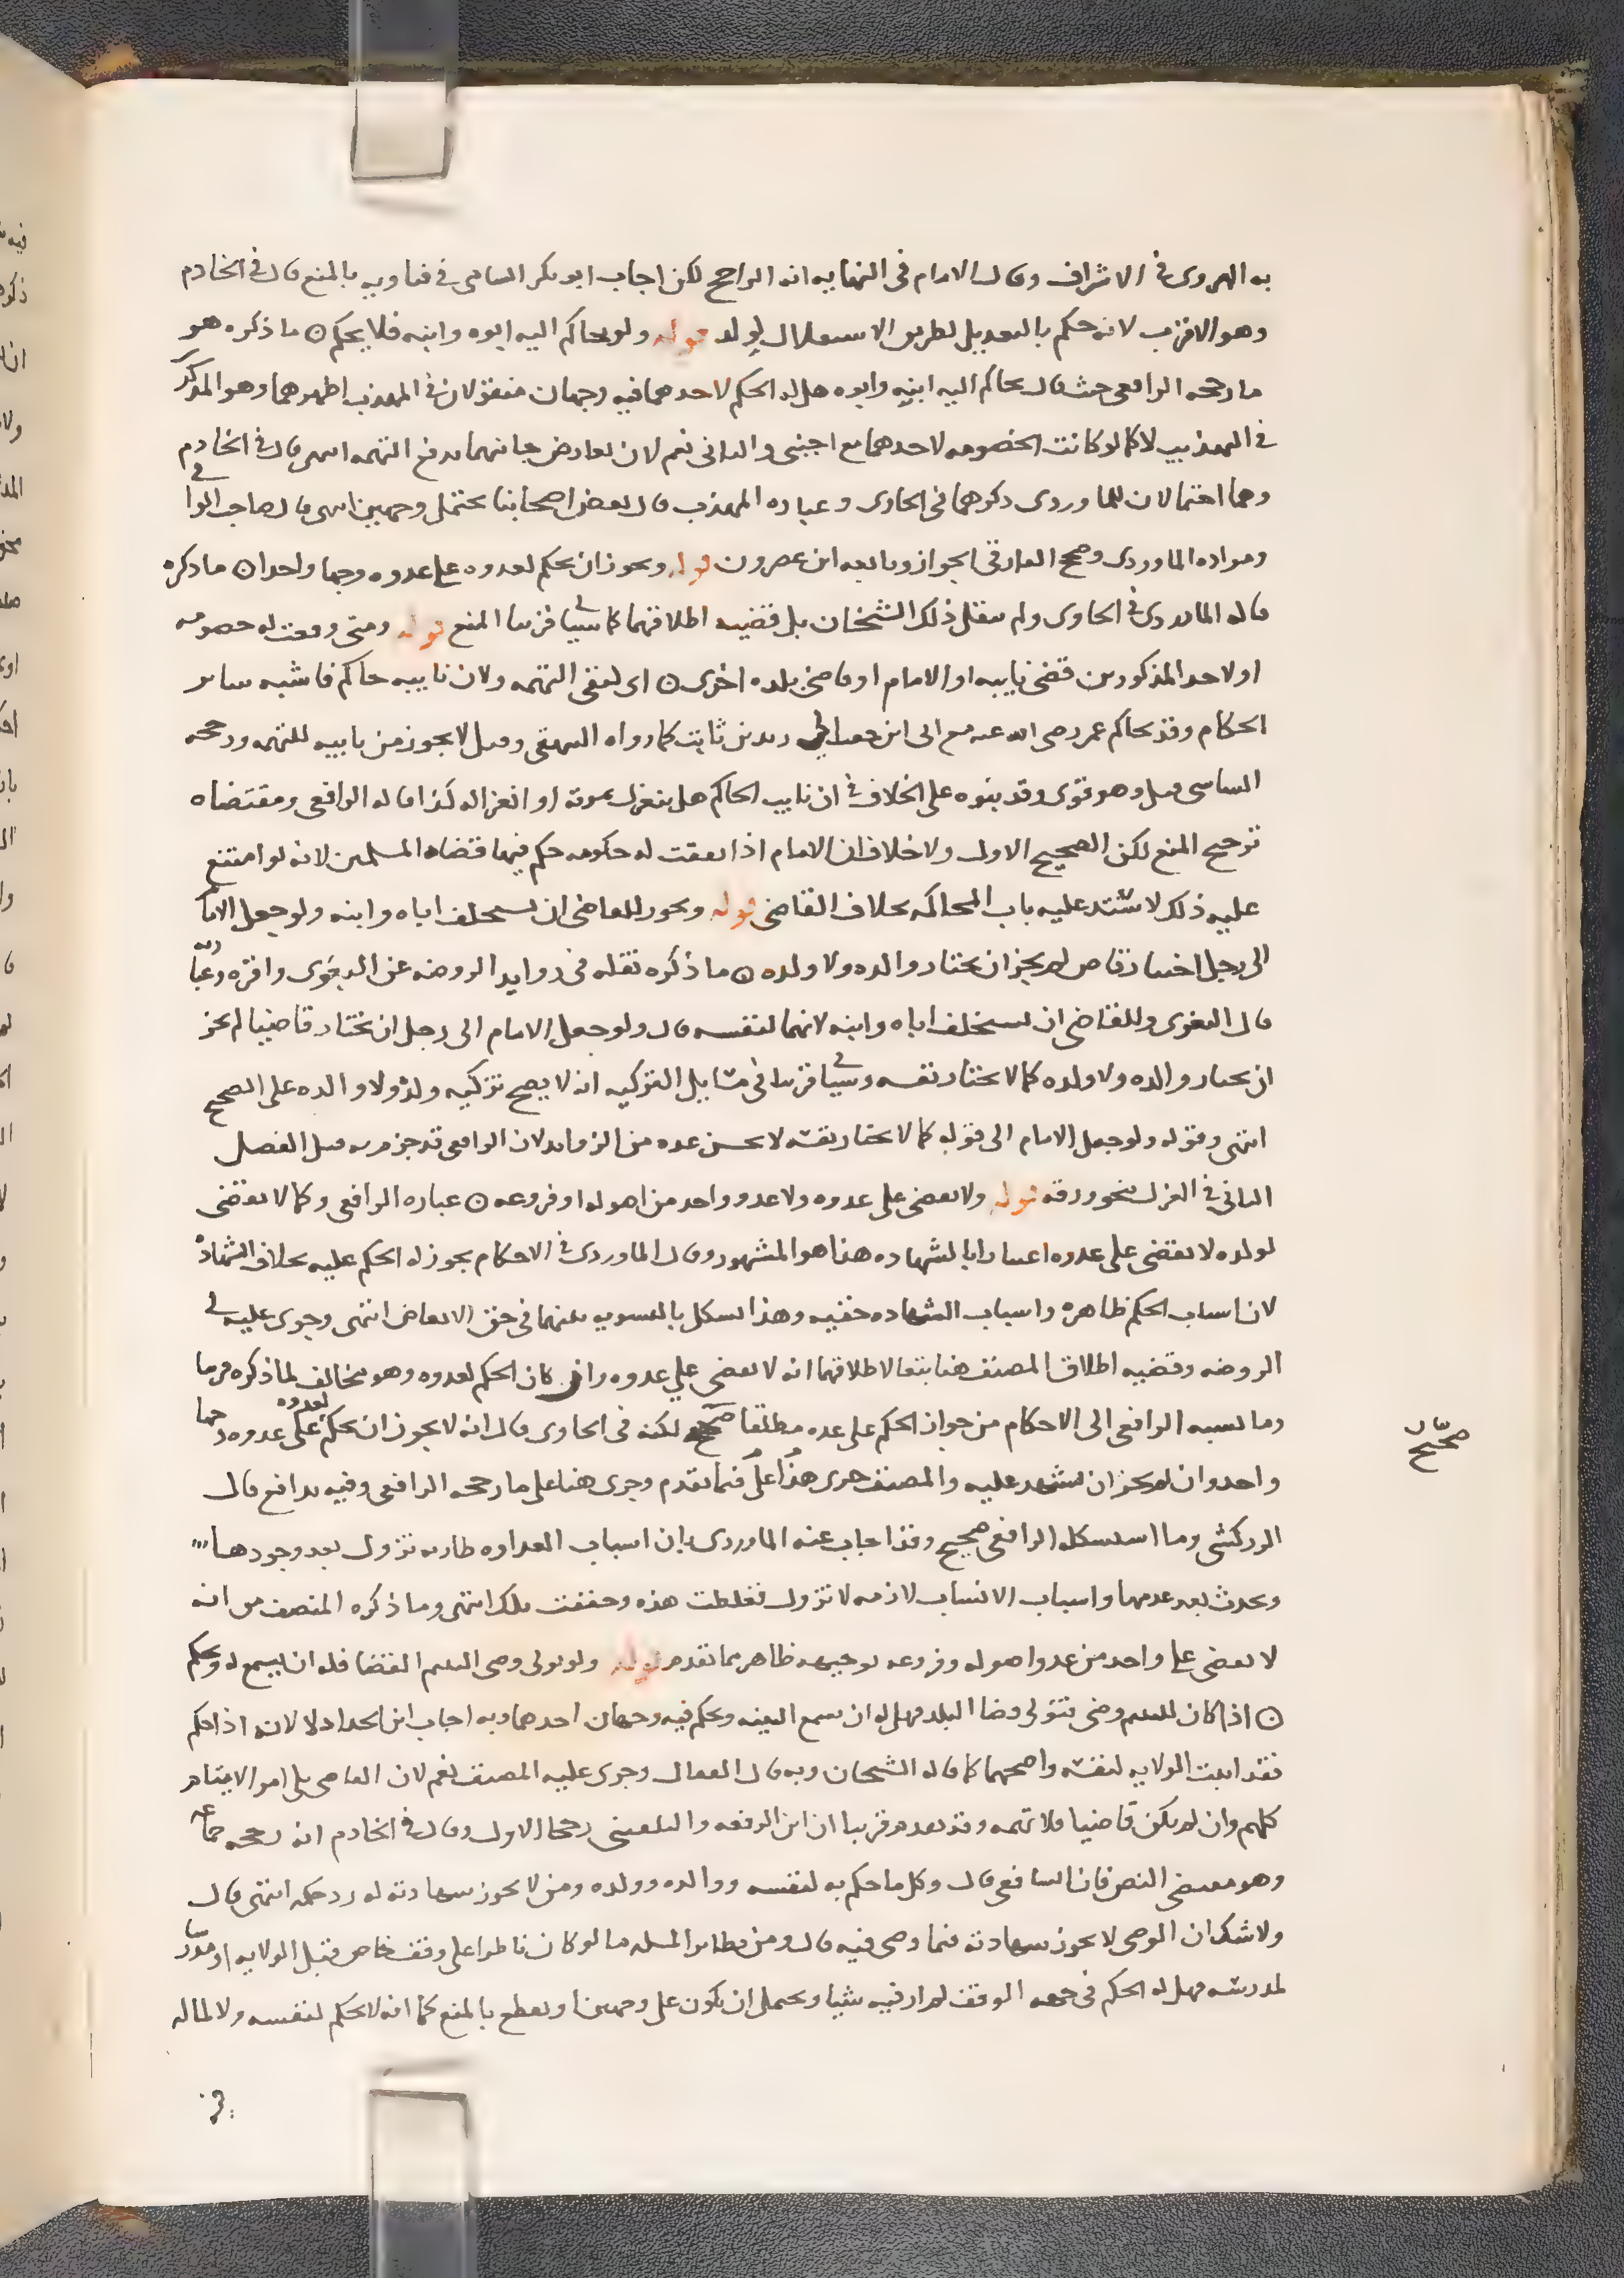 به الهروى فى الاشراف وقال الامام فى النهايه انه الراجح لكن اجاب ابو بكر الشاشى فى فتاويه بالمنع قال فى الخادم
وهو الاقرب لانه حكم بالتعديل بطريق الاستقلال لولد قوله ولو تحاكم اليه ابوه وابنه فلا يحكم ما ذكره هو
ما رجحه الرافعى حيث قال تحاكم اليه ابنه وابوه هل له الحكم لاحدهما فيه وجهان منقولان فى المهذب اظهرهما وهو المذكور
فى التهذيب لا كما لو كانت الخصومه لاحدهما مع اجنبى والثانى نعم لان تعارض جانبهما يدفع التهمه انتهى قال فى الخادم
وهما احتمالان للماوردى ذكرهما فى الحاوى وعباره المهذب قال بعض اصحابنا يحتمل وجهين انتهى قال صاحب الوافى
ومراده الماوردى وصحح الفارقى الجواز وتابعه ابن عصرون قوله ويجوز ان يحكم لعدوه على عدوه وجها واحدا ما ذكره
قاله الماوردى فى الحاوى ولم ينقل ذلك الشيخان بل قضيه اطلاقهما كما سياتى قريبا المنع قوله ومتى وقعت له خصومه
او لاحد المذكورين قضى نايبه او الامام او قاضى بلده اخرى اى لنفى التهمه ولان نايبه حاكم فاشبه ساير
الحكام وقد تحاكم عمر رضى الله عنه مع ابى ابن كعب الى زيد بن ثابت كما رواه البيهقى وقيل لا يجوز من نايبه للتهمه ورجحه
الشاشى قيل وهو قوى وقد بنوه على الخلاف فى ان نايب الحاكم هل ينعزل بموته او انعزاله كذا قاله الرافعى ومقتضاه
ترجيح المنع لكن الصحيح الاول ولا خلاف ان الامام اذا تعلقت له حكومه حكم فيها قضاه المسلمين لانه لو امتنع
عليه ذلك لاشتد عليه باب المحاكمه بخلاف القاضى قوله ويجوز للقاضى ان يستخلف اباه وابنه ولو جعل الامام
الى رجل اختيار قاض لم يجز ان يختار والده ولا ولده ما ذكره نقله فى زوايد الروضه عن البغوى واقره وعبارته
قال البغوى وللقاضى ان يستخلف اباه وابنه لانهما كنفسه قال ولو جعل الامام الى رجل ان يختار قاضيا لم يجز
ان يختار والده ولا ولده كما لا يختار نفسه وسياتى قريبا فى مسايل التزكيه انه لا يصح تزكيه ولد ولا والده على الصحيح
انتهى وقوله ولو جعل الامام الى قوله كما لا يختار نفسه لا يحسن عده من الزوايد لان الرافعى قد جزم به قبل الفصل
الثانى فى العزل بنحو ورقه قوله ولا يقضى على عدوه ولا عدو واحد من اصوله او فروعه عباره الرافعى وكما لا يقضى
لولده لا يقضى على عدوه اعتبارا بالشهاده هذا هو المشهور وقال الماوردى فى الاحكام يجوز له الحكم عليه بخلاف الشهاده
لان اسباب الحكم ظاهره واسباب الشهاده خفيه وهذا يشكل بالتسويه بينهما فى حق الابعاض انتهى وجرى عليه فى
الروضه وقضيه اطلاق المصنف هنا تبعا لاطلاقهما انه لا يقضى على عدوه وان كان الحكم لعدوه وهو مخالف لما ذكره قريبا
وما نسبه الرافعى الى الاحكام من جواز الحكم على عدوه مطلقا صحيح لكنه فى الحاوى قال انه لا يجوز ان يحكم لعدوه على عدوه وجها
واحد وان لم يجز ان يشهد عليه والمصنف جرى على هذا فيما تقدم وجرى هنا على ما رجحه الرافعى وفيه تدافع قال
الزركشى وما استشكله الرافعى صحيح وقد اجاب عنه الماوردى بان اسباب العداوه طاريه تزول بعد وجودها
وتحدث بعد عدمها واسباب الانساب لازمه لا تزول فغلظت هذه وخففت تلك انتهى وما ذكره المصنف من انه
لا يقضى على واحد من عدو اصوله وفروعه توجيهه ظاهر مما تقدم قوله ولو تولى وصى اليتيم القضا فله ان يسمع له ويحكم
اذا كان لليتيم وصى فتولى قضا البلد فهل له ان يسمع البينه ويحكم فيه وجهان احدهما وبه اجاب ابن الحداد لا لانه اذا حكم
فقد اثبت الولايه لنفسه واصحهما كما قاله الشيخان وبه قال القفال وجرى عليه المصنف نعم لان القاضى يلى امر الايتام
كلهم وان لم يكن قاضيا فلا تهمه وقد تقدم قريبا ان ابن الرفعه والبلقينى رجحا الاول وقال فى الخادم انه رجحه جماعه
وهو مقتضى النص فان الشافعى قال وكل ما حكم به لنفسه ووالده وولده ومن لا يجوز شهادته له رد حكمه انتهى قال
ولا شك ان الوصى لا يجوز شهادته فيما وصى فيه قال ومن نظاير المسله ما لو كان ناظرا على وقف خاص قبل الولايه او مدرسا
لمدرسه فهل له الحكم فى جهه الوقف لم ار فيه شيا ويحتمل ان يكون على وجهين او يقطع بالمنع كما انه لا يحكم لنفسه ولا لماله
صحيح